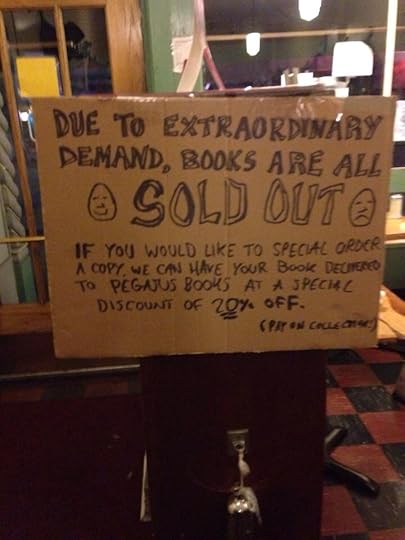 DUE TO EXTRAORDINARY
DEMAND, BOOKS ARE ALL
SOLD OUT
IF YOU WOULD LIKE TO SPECIAL ORDER
A COPY, WE CAN HAVE YOUR BOOK DELIVERED
TO PEGASUS BOOKS AT A SPECIAL
DISCOUNT OF 20% OFF.
(PAY ON COLLECTION)